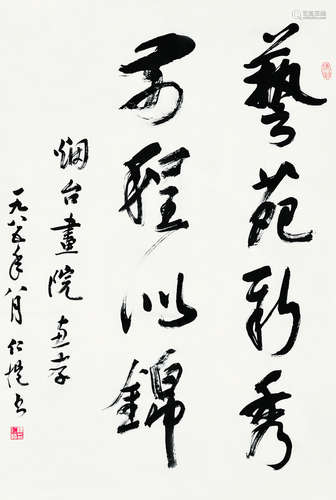 藝苑新秀
前程似錦
烟台畫院惠存
一九八五年八月仁愷書